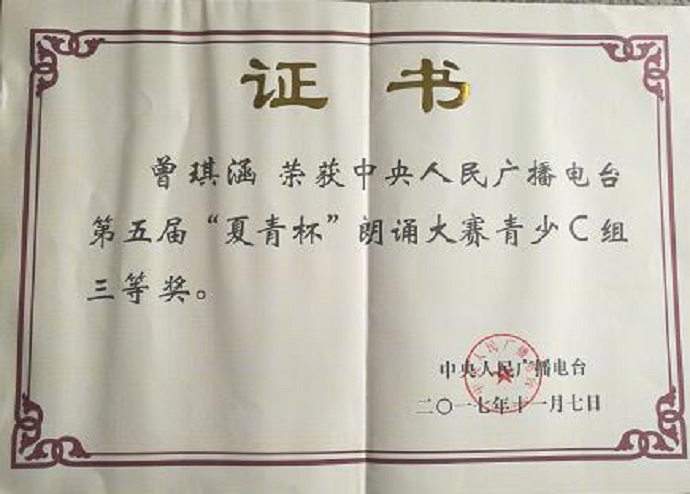 证书
曾琪涵 荣获中央人民广播电台
第五届“夏青杯”朗诵大赛青少C组
三等奖。
中央人民广播电台
二〇一七年十一月七日